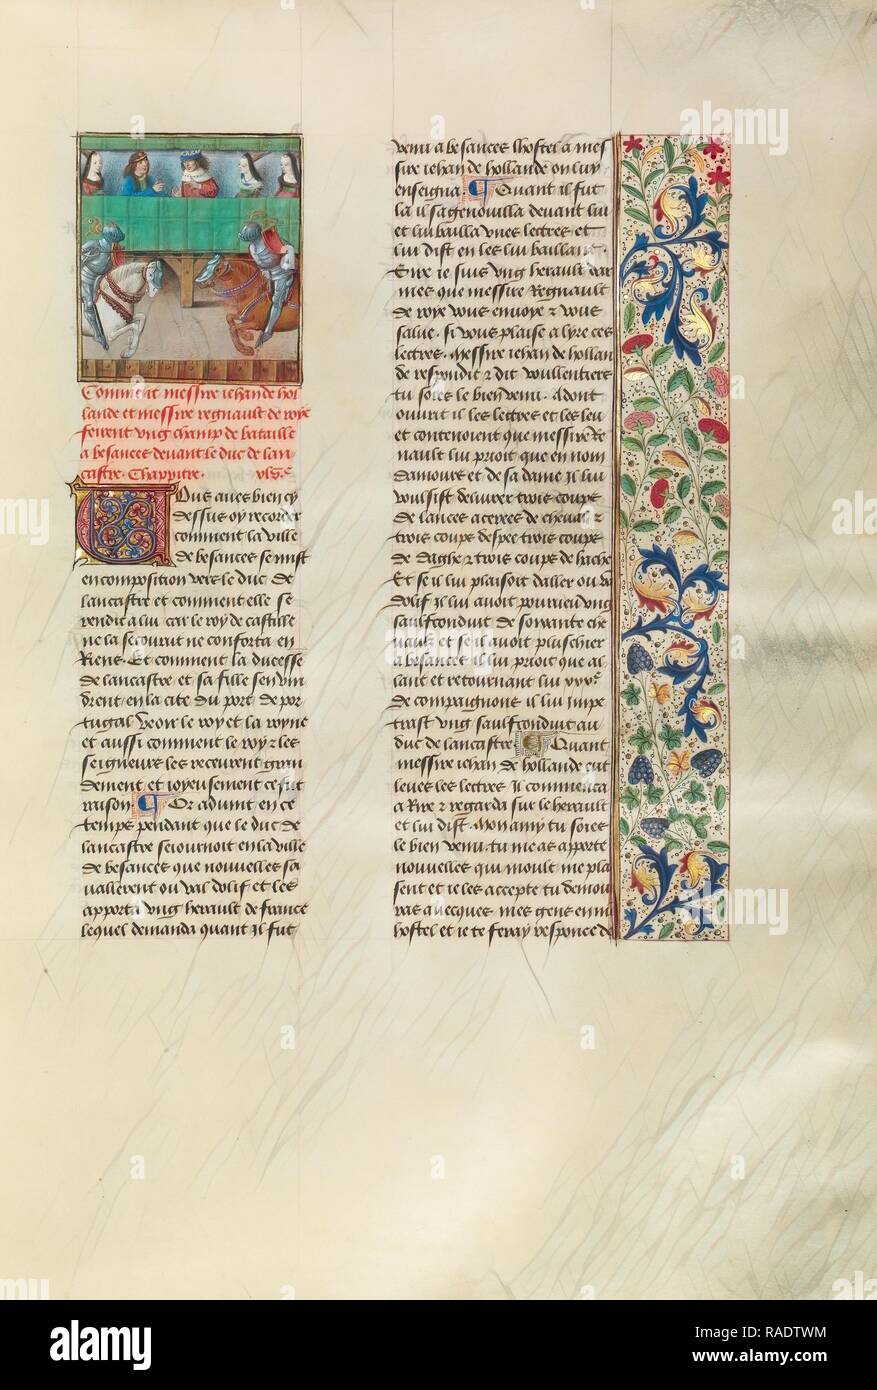 Comment messire iehan de hol
lande et messire regnault de roye
feirent vng champ de bataille
a besances deuant le duc de lan
castre. Chappitre.
Vous aues bien cy
dessus oy recorder
comment la ville
de besances se mist
en composition vers le duc de
lancastre et comment elle se
rendit a lui car le roy de castille
ne la secourut ne conforta en
Riens. Et comment la ducesse
de lancastre et sa fille sen vin
drent en la cite du port de por
tugal veoir le roy et la royne
et aussi comment le roy z les
seigneurs les receurent gran
dement et ioyeusement ce fut
raison Or aduint en ce
temps pendant que le duc de
lancastre seiournoit en la ville
de besances que nouuelles sa
uallerent ou val dolif et les
apporta vng herault de france
lequel demanda quant Il fut
venu a besances lhostel a mes
sire iehan de hollande on luy
enseigna. Quant il fut
la il sagenouilla deuant lui
et lui bailla vnes lectres et
lui dist en les lui baillant.
Sire ie suis vng herault dar
mes que messire Regnault
de roye vous enuoye z vous
salue. si vous plaise a lyre ces
lectres. Messire iehan de hollan
de respondit z dit voullentiers
tu soies le bien venu. adont
ouurit il les lectres et les leu
et contenoient que messire Re
nault lui prioit que en nom
damours et de sa dame Il lui
voulsist deliurer trois coups
de lances acerees de cheual z
trois coups despee trois coups
de daghe z trois coups de hache
Et se il lui plaisoit daller ou va
dolif Il lui auoit pourueu vng
saufconduit de soixante che
uaulx et se il auoit plus chier
a besances il lui prioit que al
lant et retournant lui
de compaignons il lui impe
trast vng saufconduit au
duc de lancastre Quant
messire iehan de hollande eut
leues les lectres Il commenca
a Rire z regarda sur le herault
et lui dist. Mon amy tu soies
le bien venu. tu me as apporte
nouuelles qui moult me pla
sent et ie les accepte tu demou
ras auecques mes gens en mon
hostel et ie te feray response de
alamy
alamy
Image ID: RADTWM
www.alamy.com